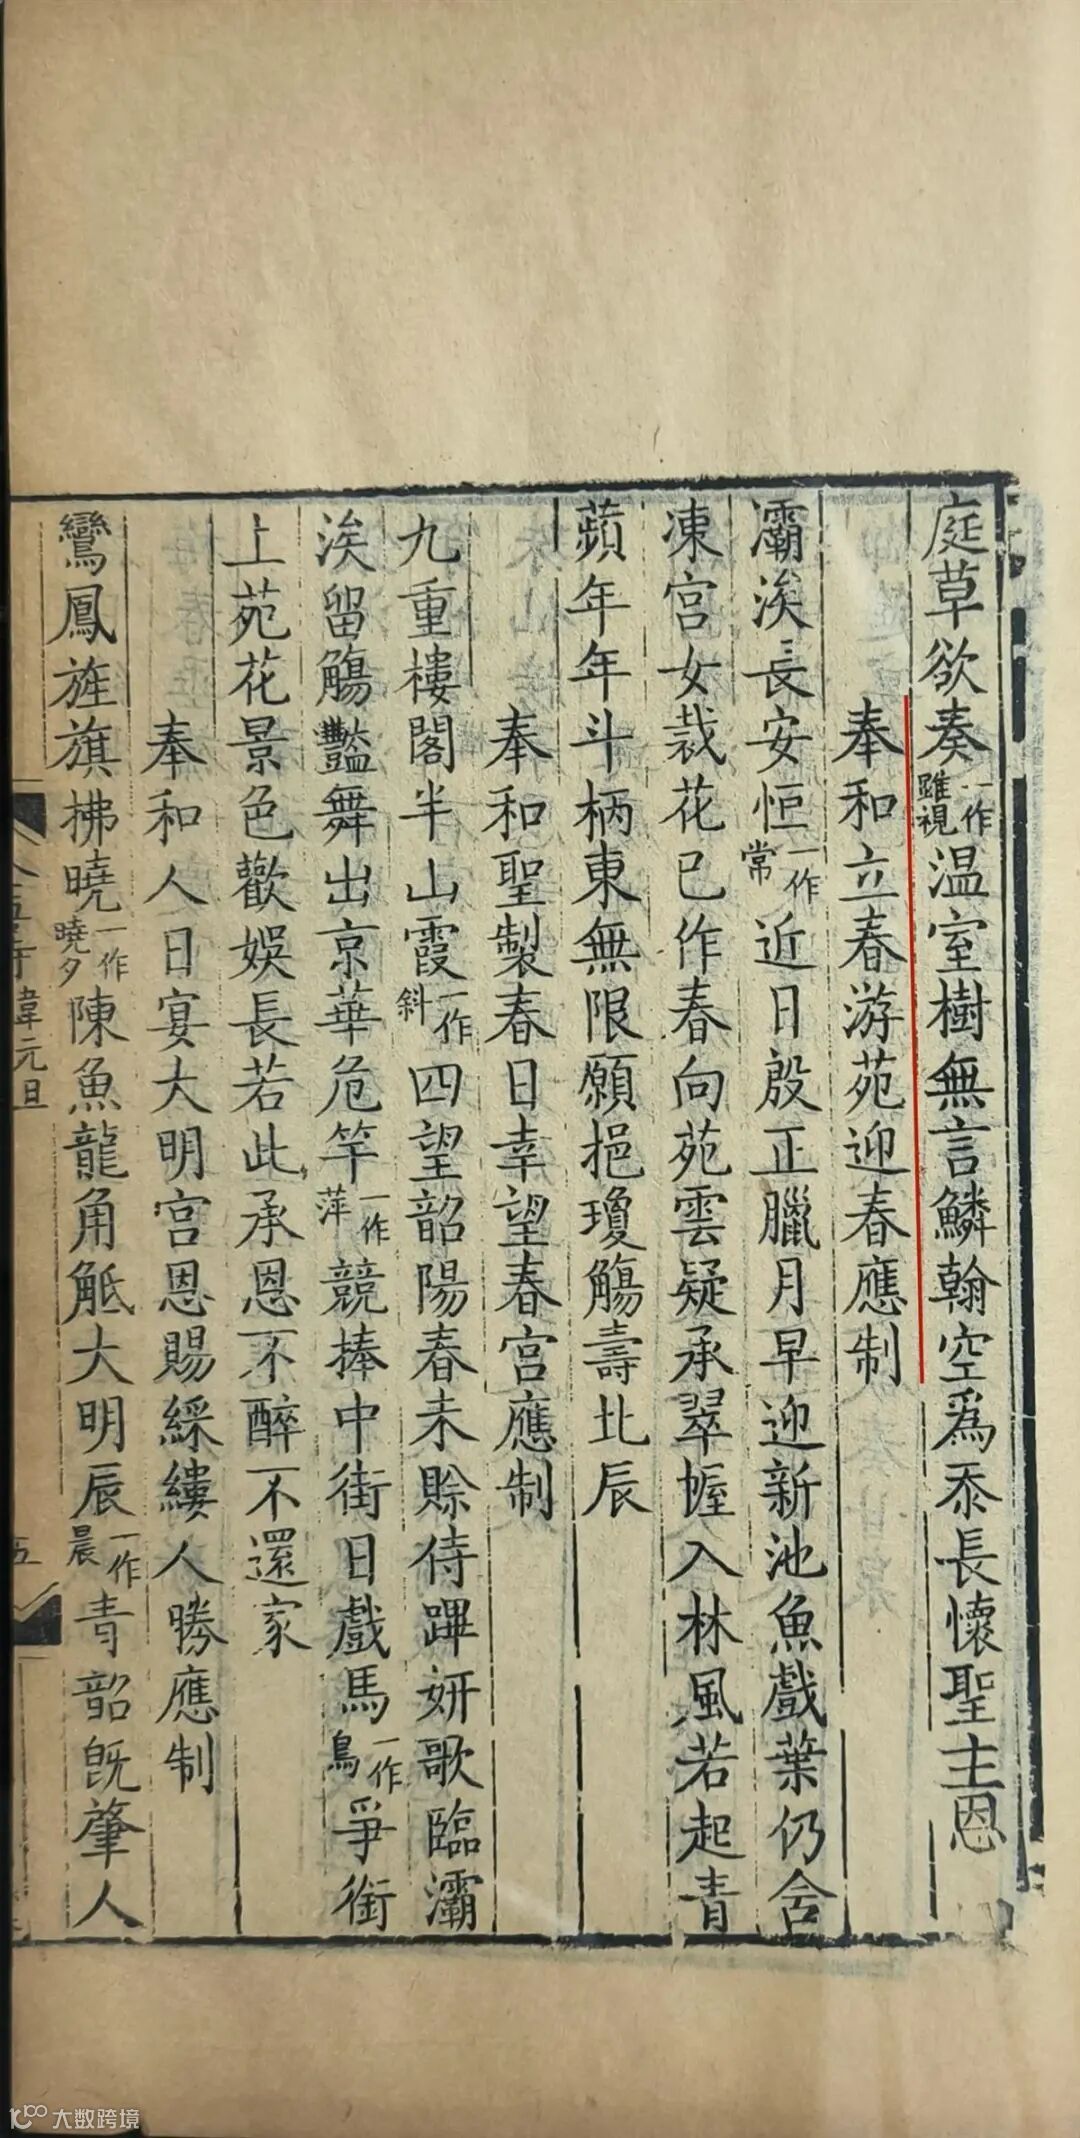 庭草欲奏一作雖視温室樹無言鱗翰空爲忝長懷聖主恩
奉和立春游苑迎春應制
灞涘長安恒一作常近日殷正臘月早迎新池魚戲葉仍含
凍宫女裁花已作春向苑雲疑承翠幄入林風若起青
蘋年年斗柄東無限願挹瓊觴壽北辰
奉和聖製春日幸望春宫應制
九重樓閣半山霞一作斜四望韶陽春未賒侍蹕妍歌臨灞
涘留觴豔舞出京華危竿一作萍競捧中街日戲馬一作鳥爭銜
上苑花景色歡娱長若此承恩不醉不還家
奉和人日宴大明宫恩賜綵縷人勝應制
鸞鳳旌旗拂曉一作曉夕陳魚龍角觝大明辰一作晨青韶旣肇人
韋元旦
五
大数跨境